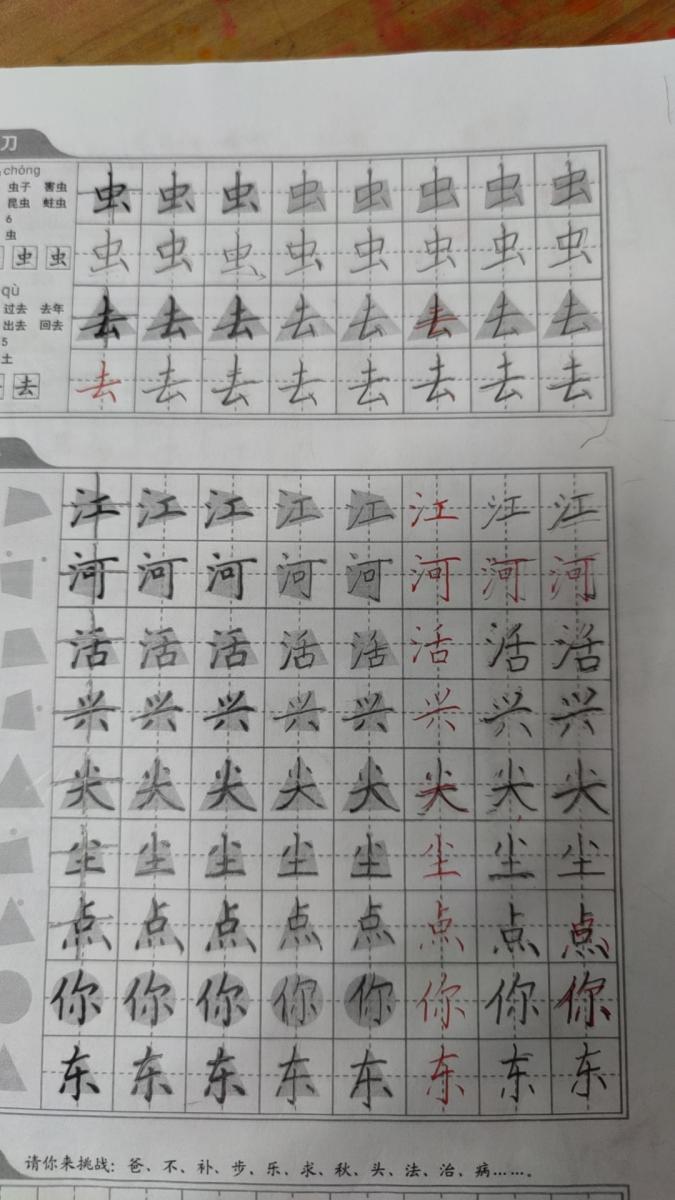 刀
chóng
虫子 害虫
昆虫 蛀虫
6
虫
虫 虫
虫 虫 虫 虫 虫 虫 虫 虫
虫 虫 虫 虫 虫 虫 虫 虫
qù
过去 去年
出去 回去
5
土
去
去 去 去 去 去 去 去 去
去 去 去 去 去 去 去 去
江 江 江 江 江 江 江 江
河 河 河 河 河 河 河 河
活 活 活 活 活 活 活 活
兴 兴 兴 兴 兴 兴 兴 兴
尖 尖 尖 尖 尖 尖 尖 尖
尘 尘 尘 尘 尘 尘 尘 尘
点 点 点 点 点 点 点 点
你 你 你 你 你 你 你 你
东 东 东 东 东 东 东 东
请你来挑战：爸、不、补、步、乐、求、秋、头、法、治、病……。